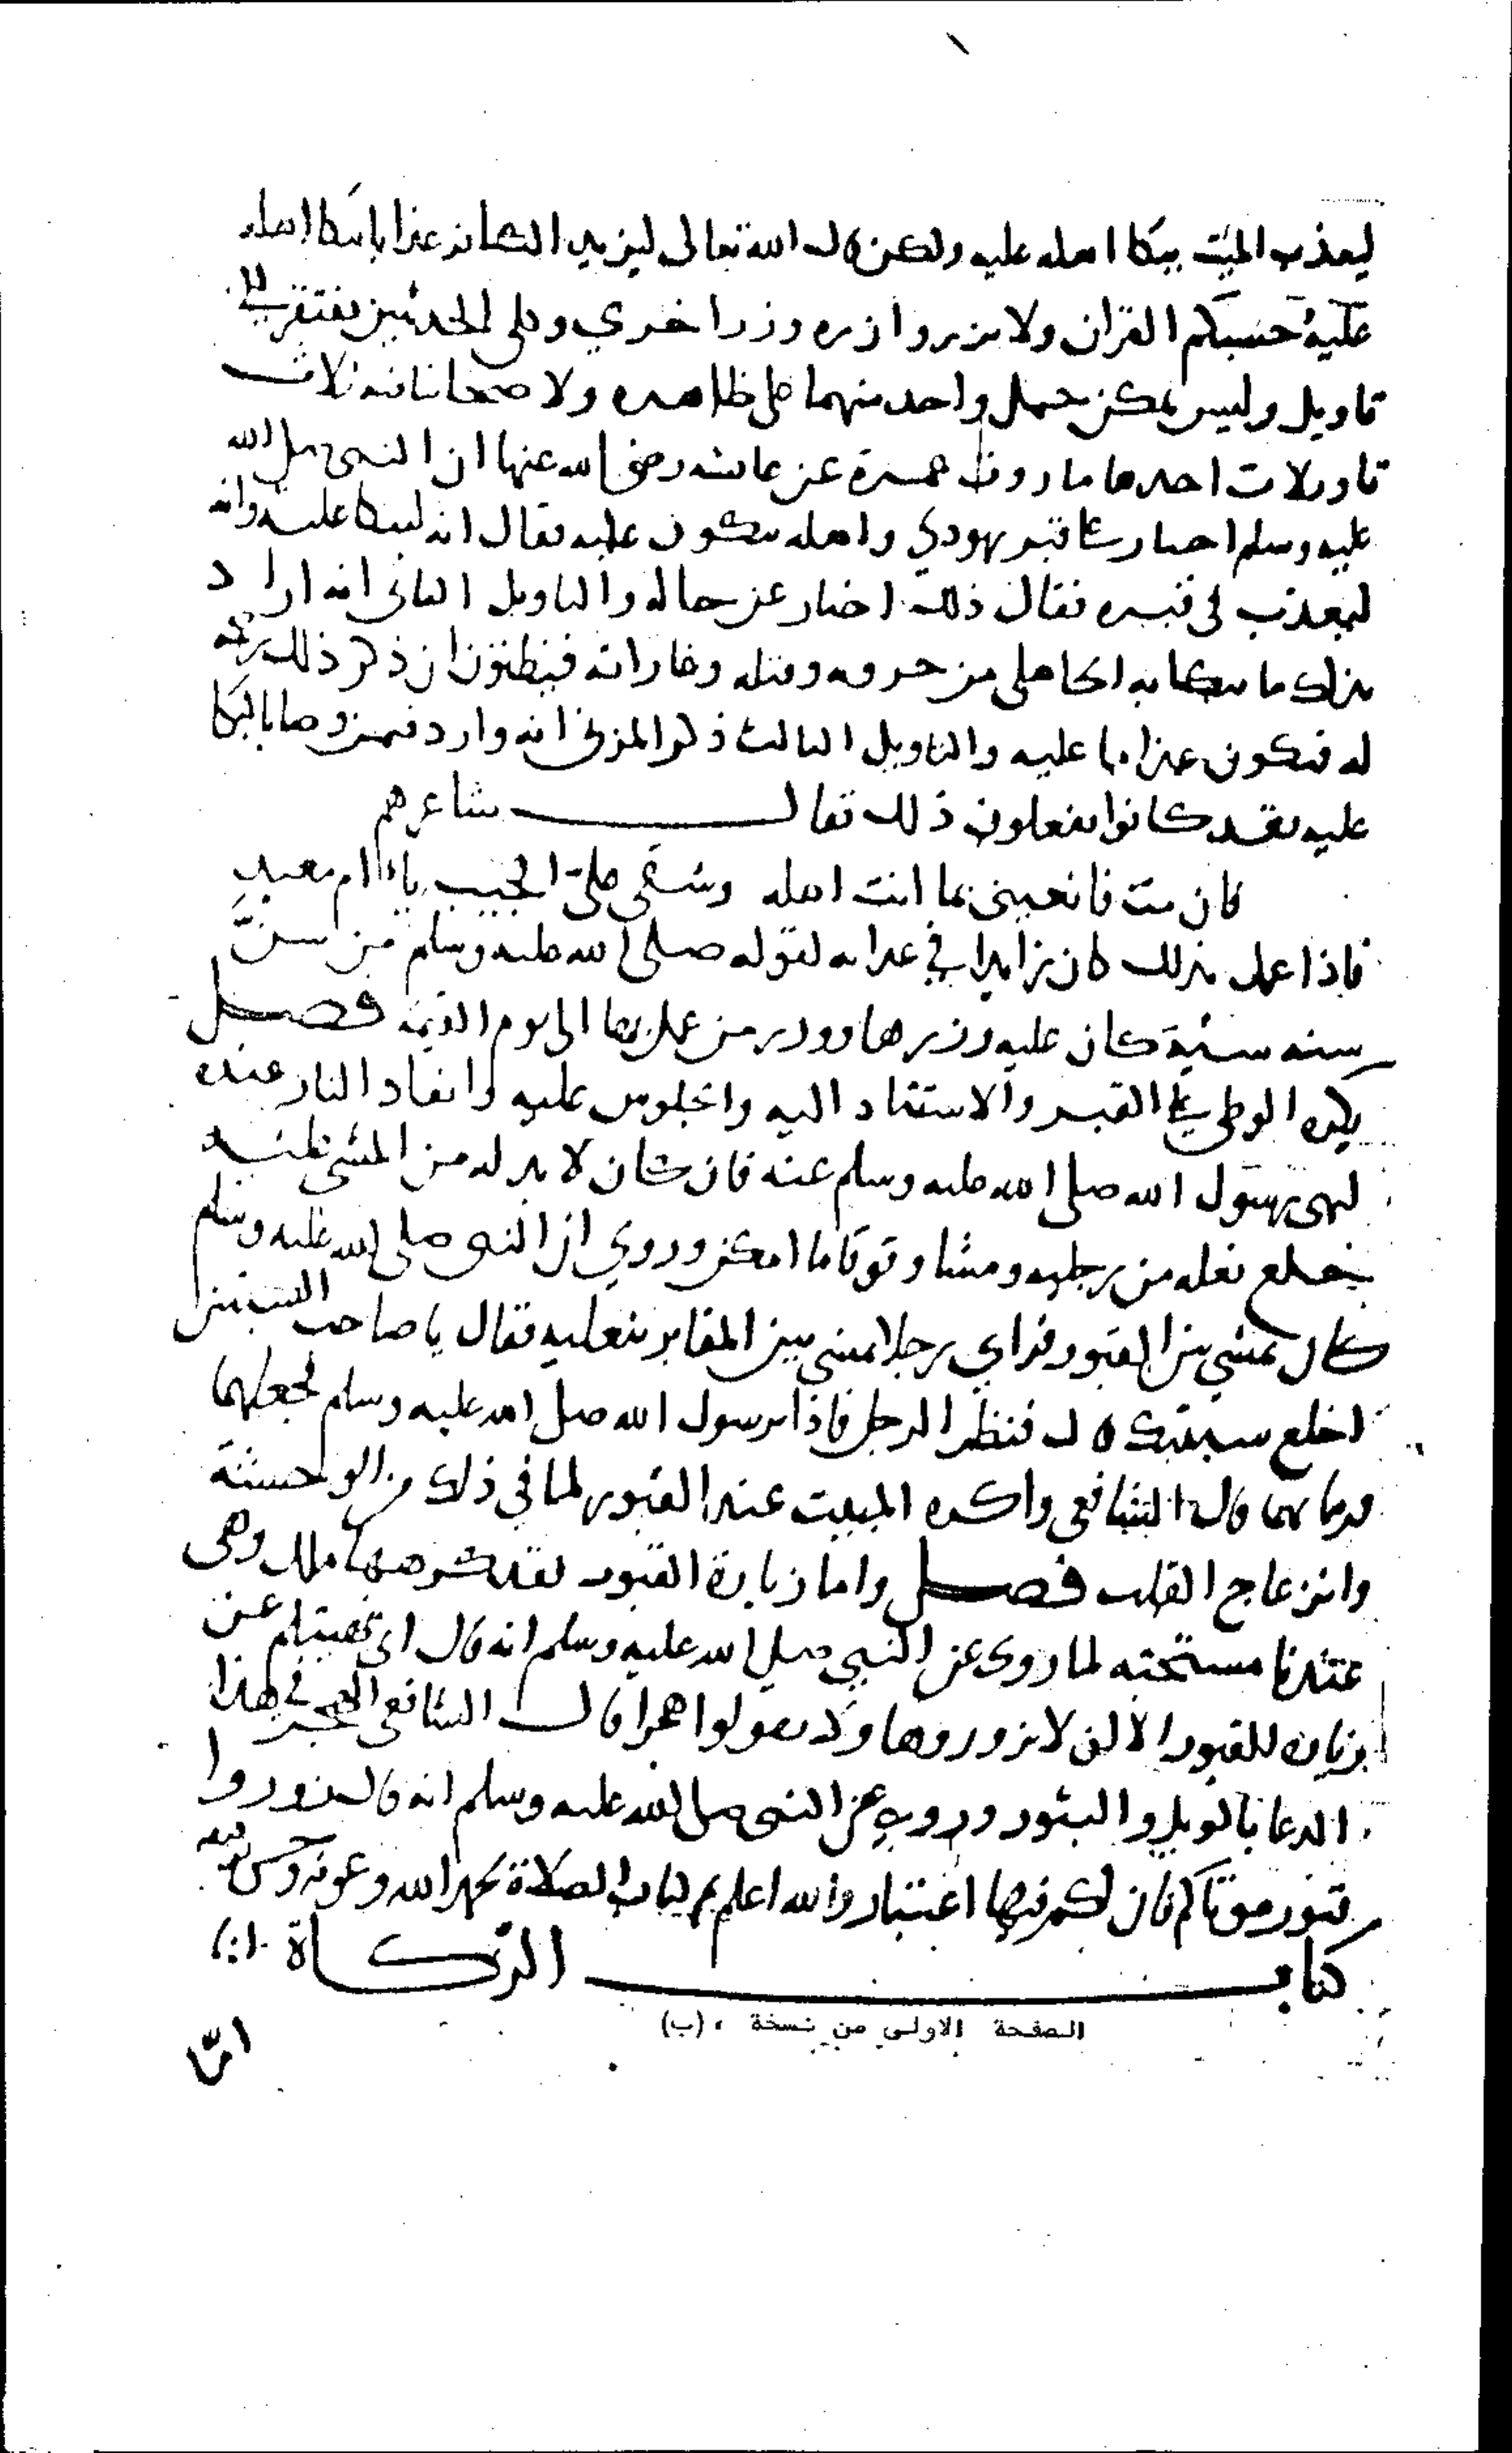 ليعذب الميت ببكا اهله عليه ولكن قال الله تعالى ليزيد الكافر عذابا ببكا اهله
عليه حسبكم القران ولا تزر وازره وزر اخري وكلى الحديثين يفتقر الى
تاويل وليس يمكن حمل واحد منهما على ظاهره ولاصحابنا فيه ثلاث
تاويلات احدها ما روت عمرة عن عائشه رضي الله عنها ان النبي صلى الله
عليه وسلم اجتاز على قبر يهودي واهله يبكون عليه فقال انه ليبكا عليه وانه
ليعذب في قبره فقال ذلك اخبار عن حاله والتاويل الثاني انه اراد
بذلك ما يبكا به الجاهلي من حروبه وقتله وغاراته فيظنون ان ذكر ذلك
له فيكون عذابا عليه والتاويل الثالث ذكر المزني انه وارد فيمن وصا بالبكا
عليه فقد كانوا يفعلون ذلك فقال شاعرهم
فان مت فانعيني بما انت اهله وشقي علي الجيب يا ام معبد
فاذا عمل بذلك كان زايدا في عذابه لقوله صلى الله عليه وسلم من سن
سنه سيئة كان عليه وزرها ووزر من عمل بها الى يوم القيمة فصل
يكره الوطي على القبر والاستناد اليه والجلوس عليه وايقاد النار عنده
لنهي رسول الله صلى الله عليه وسلم عنه فان كان لا بد له من المشي عليه
خلع نعله من رجليه ومشا وتوقا ما امكن وروي ان النبي صلى الله عليه وسلم
كان يمشي بين القبور فراي رجلا يمشي بين المقابر بنعليه فقال يا صاحب السبتيتين
اخلع سبتيتك قال فنظر الرجل فاذا رسول الله صلى الله عليه وسلم فخلعهما
ورما بهما قال الشافعي واكره المبيت عند القبور لما في ذلك من الوحشة
وانزعاج القلب فصل واما زيارة القبور فقد كرهها مالك وهي
عندنا مستحبه لما روى عن النبي صلى الله عليه وسلم انه قال اني نهيتكم عن
زيارة القبور الا فزوروها ولا تقولوا هجرا قال الشافعي الهجر في هذا
الدعا بالويل والثبور وروي عن النبي صلى الله عليه وسلم انه قال زوروا
قبور موتاكم فان لكم فيها اعتبار والله اعلم تم كتاب الصلاة بحمد الله وعونه وحسن توفيقه
كتاب الزكاة
الصفحة الاولى من نسخة (ب)
امّا